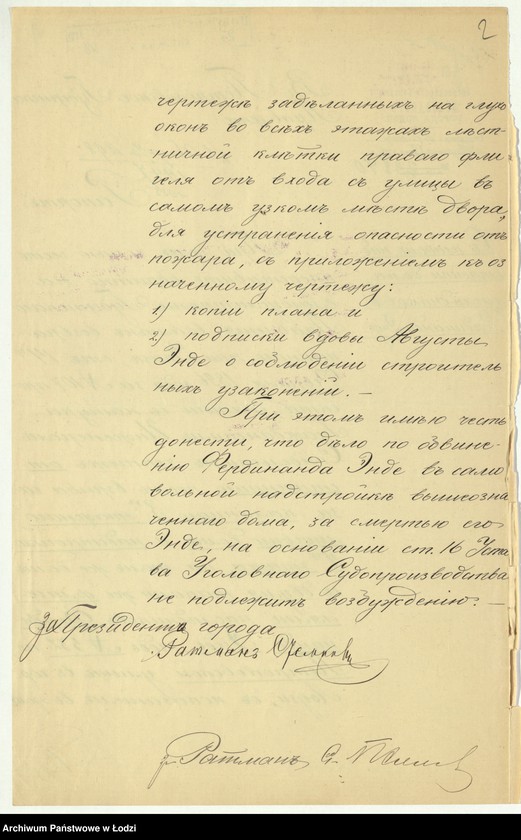 2
чертежѣ задѣланныхъ на глухо
оконъ во всѣхъ этажахъ лѣст-
ничной клѣтки праваго фли-
геля отъ входа съ улицы въ
самомъ узкомъ мѣстѣ двора,
для устраненія опасности отъ
пожара, съ приложеніемъ къ оз
наченному чертежу:
1) копіи плана и
2) подписки вдовы Августы
Энде о соблюденіи строитель
ныхъ узаконеній. —
При этомъ имѣю честь
донести, что дѣло по обвине-
нію Фердинанда Энде въ само
вольной надстройкѣ вышеозна
ченнаго дома, за смертью его
Энде, на основаніи ст. 16 Уста
ва Уголовнаго Судопроизводства
не подлежитъ возбужденію. —
За Президента города
Ратманъ
Ратманъ
Archiwum Państwowe w Łodzi